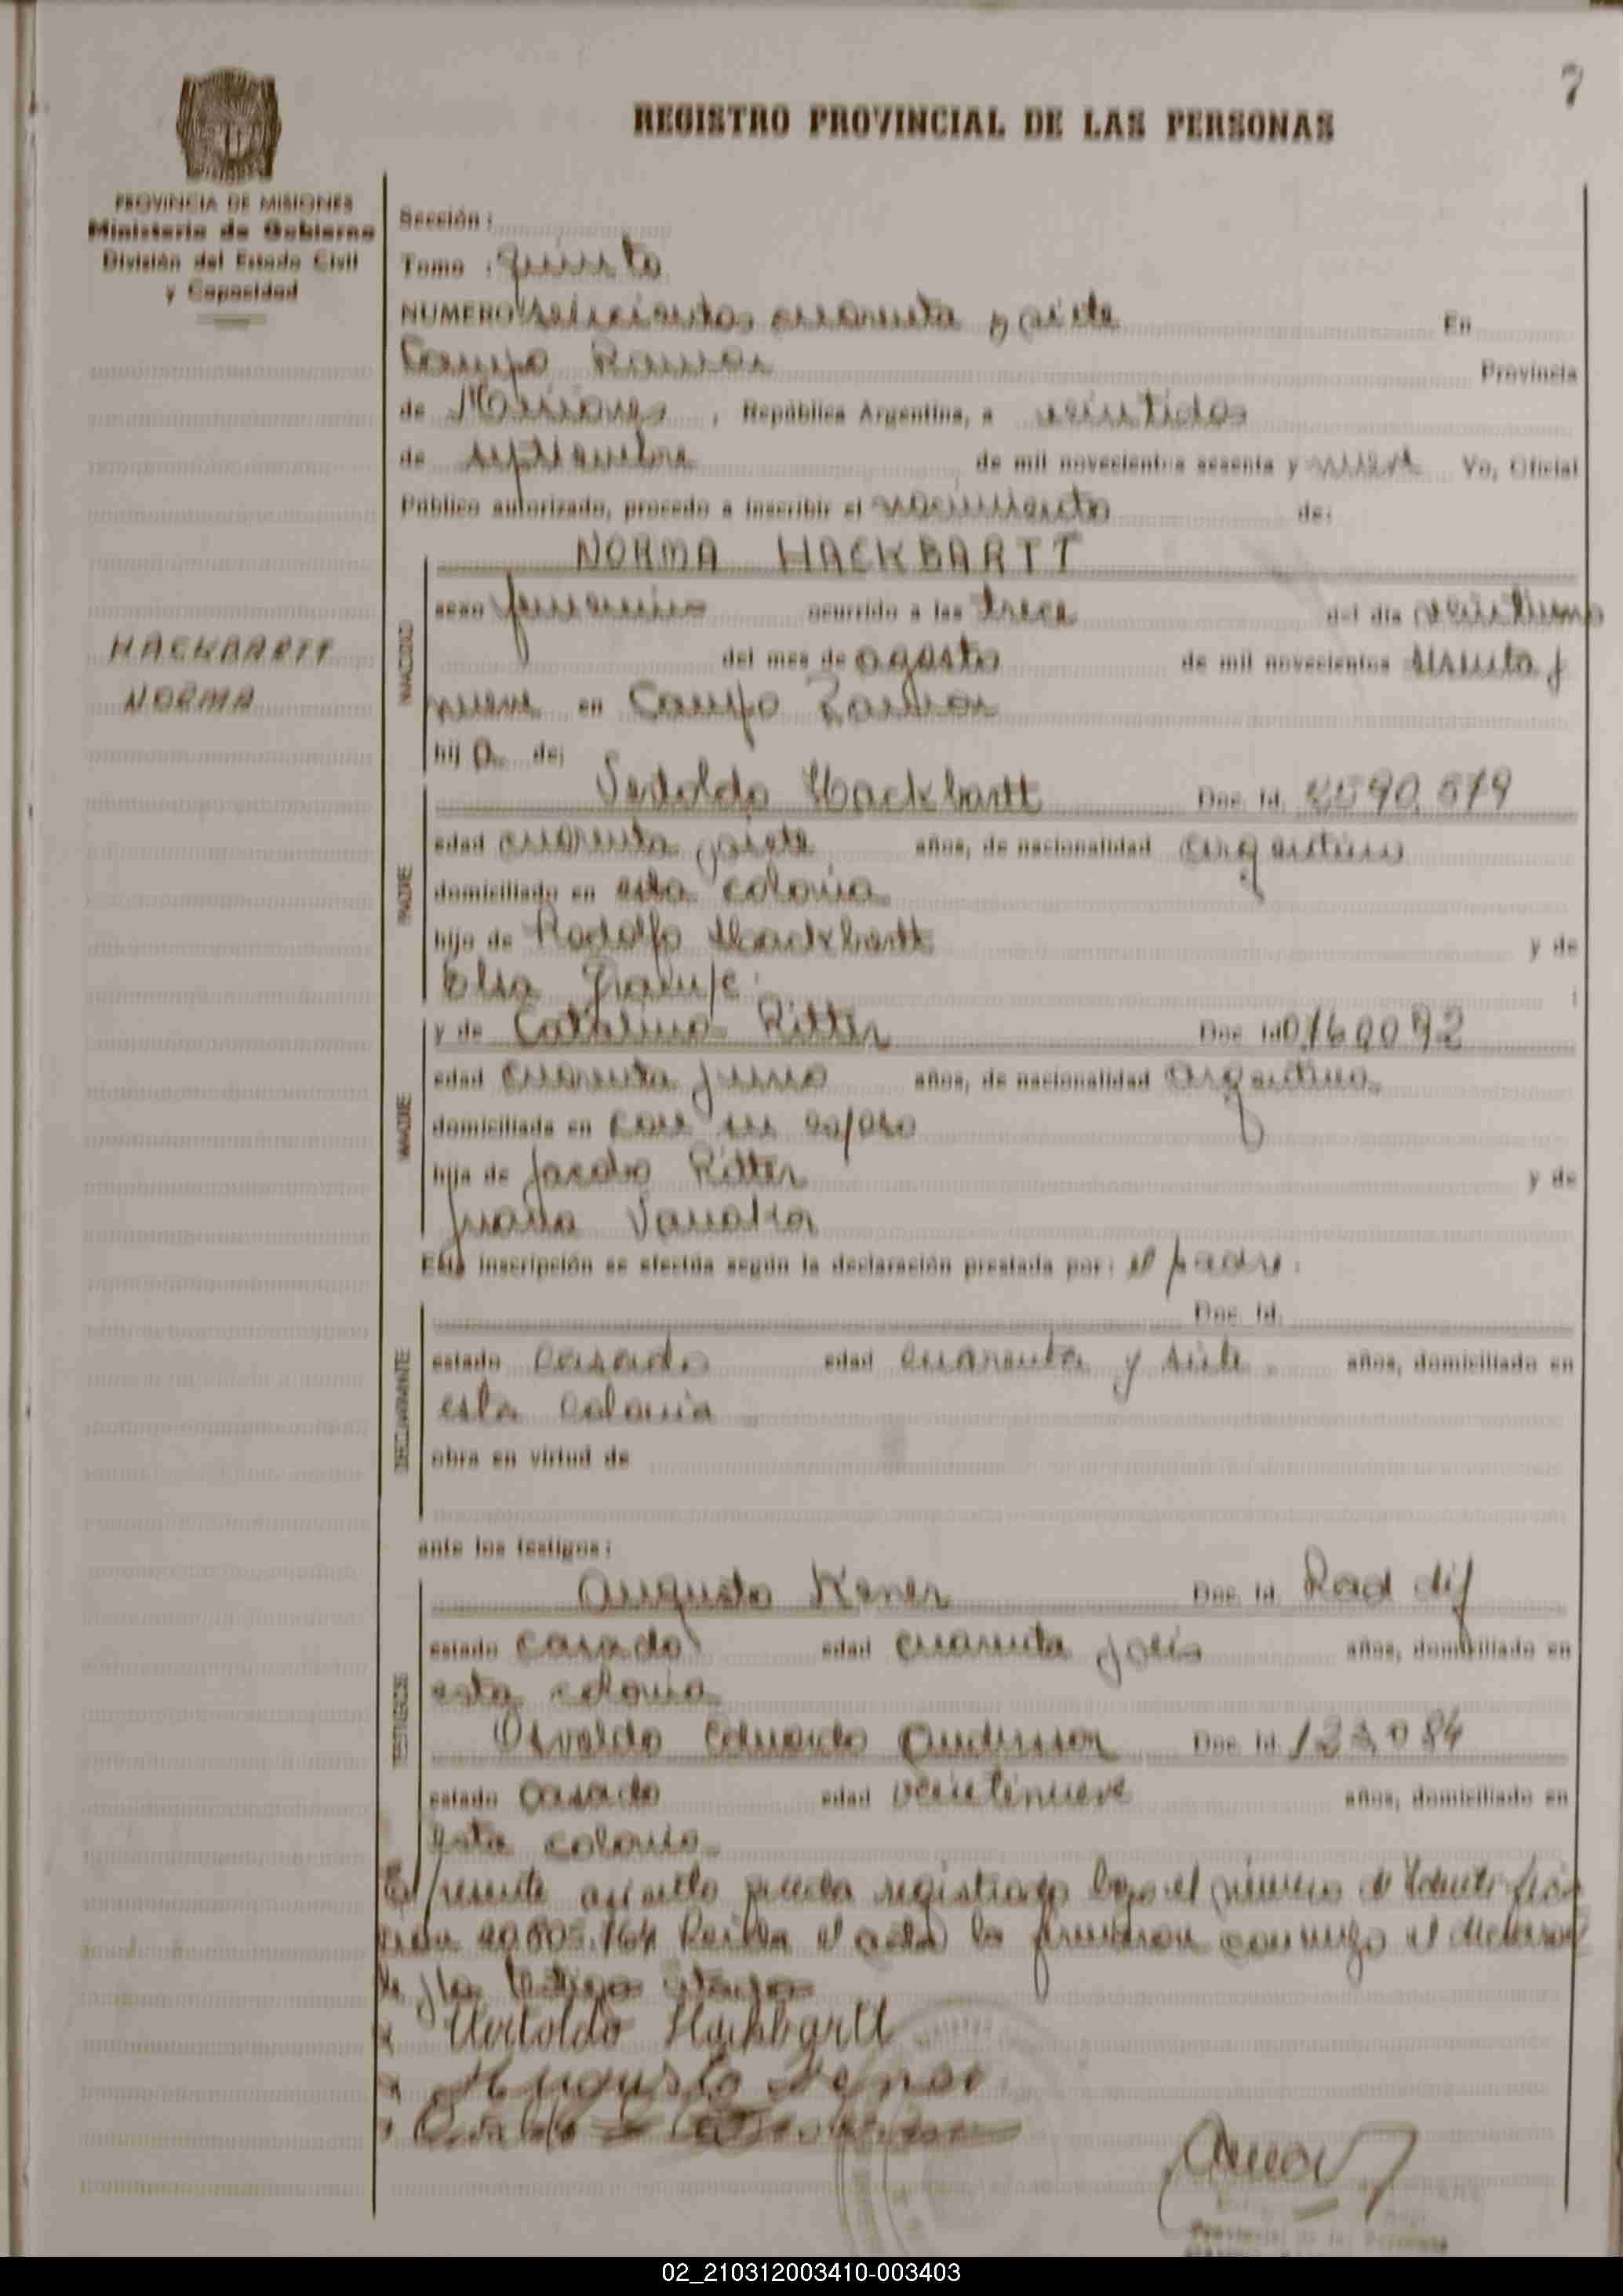 7
REGISTRO PROVINCIAL DE LAS PERSONAS
PROVINCIA DE MISIONES
Ministerio de Gobierno
División del Estado Civil
y Capacidad
HACKBARTT
NORMA
Sección:
Tomo: quinto
NUMERO seiscientos cuarenta y siete En
Campo Ramon Provincia
de Misiones, República Argentina, a veintidos
de septiembre de mil novecientos sesenta y nueve Yo, Oficial
Público autorizado, procedo a inscribir el nacimiento de:
NORMA HACKBARTT
NACIDO
sexo femenino ocurrido a las trece del día veintiuno
del mes de agosto de mil novecientos sesenta y
nueve en Campo Ramon
hija de:
PADRE
Vertoldo Hackbartt Doc. Id.
edad cuarenta y siete años, de nacionalidad argentino
domiciliado en esta colonia
hijo de Rodolfo Hackbartt y de
Elsa
MADRE
y de Catalina Ritter Doc. Id
edad cuarenta y uno años, de nacionalidad argentina
domiciliada en con su esposo
hija de Jacobo Ritter y de
Juana
Esta inscripción se efectúa según la declaración prestada por: el padre.
DECLARANTE
Doc. Id.
estado casado edad cuarenta y siete años, domiciliado en
esta colonia
obra en virtud de
ante los testigos:
TESTIGOS
Augusto Kener Doc. Id.
estado casado edad cuarenta y seis años, domiciliado en
esta colonia
Osvaldo Eduardo Anderson Doc. Id.
estado casado edad veintinueve años, domiciliado en
esta colonia
El presente asiento queda registrado bajo el número de Identifica
ción 20.805.164 Leida el acta la firmaron conmigo el declaran
te y los testigos citados
Vertoldo Hackbartt
Augusto
02_210312003410-003403